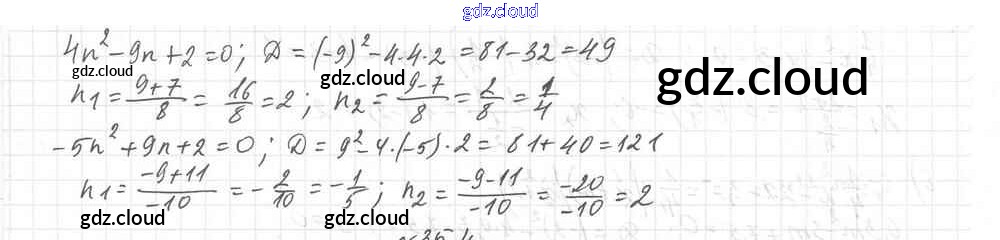 gdz.cloud
4n² - 9n + 2 = 0; D = (-9)² - 4·4·2 = 81 - 32 = 49
gdz.cloud gdz.cloud gdz.cloud
n₁ = (9+7)/8 = 16/8 = 2; n₂ = (9-7)/8 = 2/8 = 1/4
gdz.cloud gdz.cloud
-5n² + 9n + 2 = 0; D = 9² - 4·(-5)·2 = 81 + 40 = 121
n₁ = (-9+11)/(-10) = -2/10 = -1/5; n₂ = (-9-11)/(-10) = (-20)/(-10) = 2
gdz.cloud gdz.cloud gdz.cloud